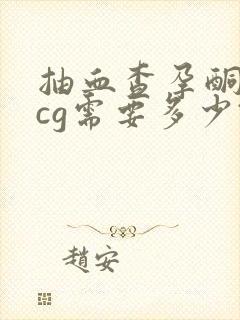 抽血查孕酮
cg需要多少
趙安